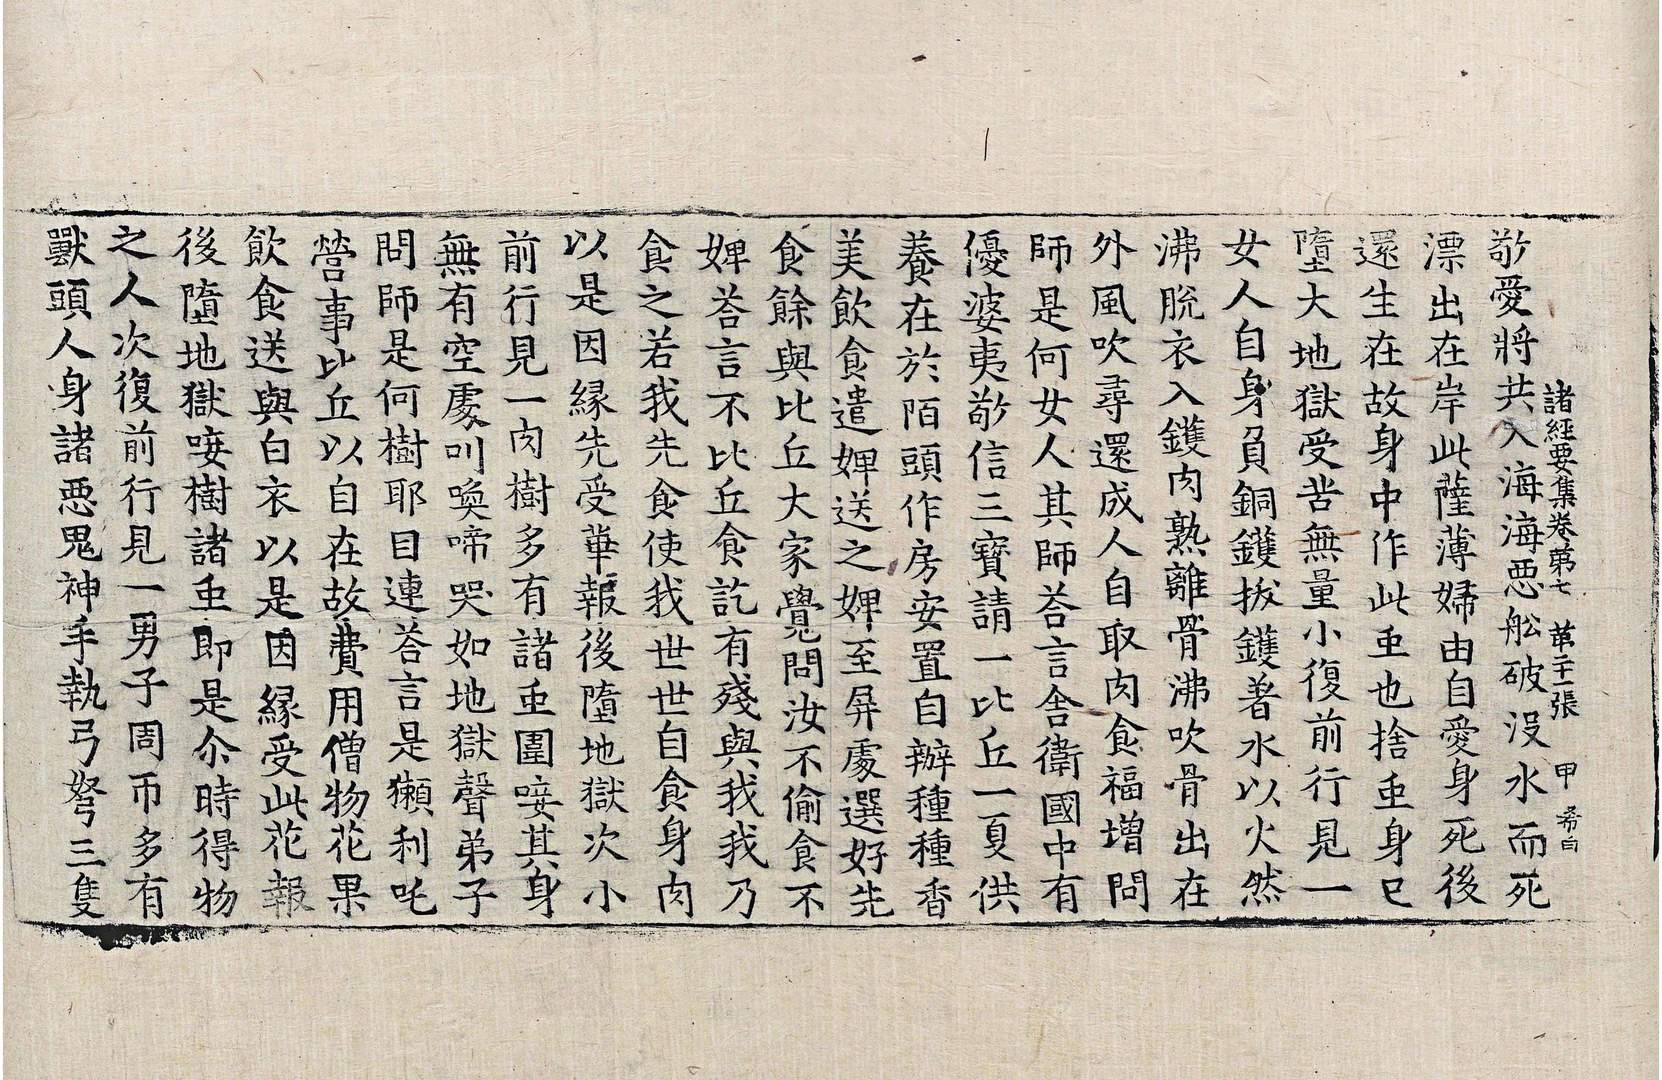 諸經要集卷第七 第二十一張 甲 希白
敬愛將共入海海惡舩破没水而死
漂出在岸此薩薄婦由自愛身死後
還生在故身中作此䖝也捨䖝身已
墮大地獄受苦無量小復前行見一
女人自身負銅鑊拔鑊著水以火然
沸脫衣入鑊肉熟離骨沸吹骨出在
外風吹尋還成人自取肉食福增問
師是何女人其師荅言舍衛國中有
優婆夷敬信三寶請一比丘一夏供
養在於陌頭作房安置自辦種種香
美飲食遣婢送之婢至屏處選好先
食餘與比丘大家覺問汝不偷食不
婢荅言不比丘食訖有殘與我我乃
食之若我先食使我世世自食身肉
以是因縁先受華報後墮地獄次小
前行見一肉樹多有諸䖝圍唼其身
無有空處叫喚啼哭如地獄聲弟子
問師是何樹耶目連荅言是獺利吒
營事比丘以自在故費用僧物花果
飲食送與白衣以是因縁受此花報
後墮地獄唼樹諸䖝即是尒時得物
之人次復前行見一男子周帀多有
獸頭人身諸惡鬼神手執弓弩三隻